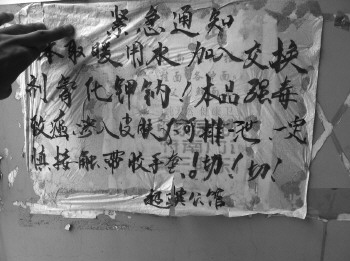 紧急通知
本取暖用水加入交换
剂氰化钾钠!本品强毒
致癌.渗入皮肤不可排吧.一定
慎接触.带收手套!切!切!
超骐公馆